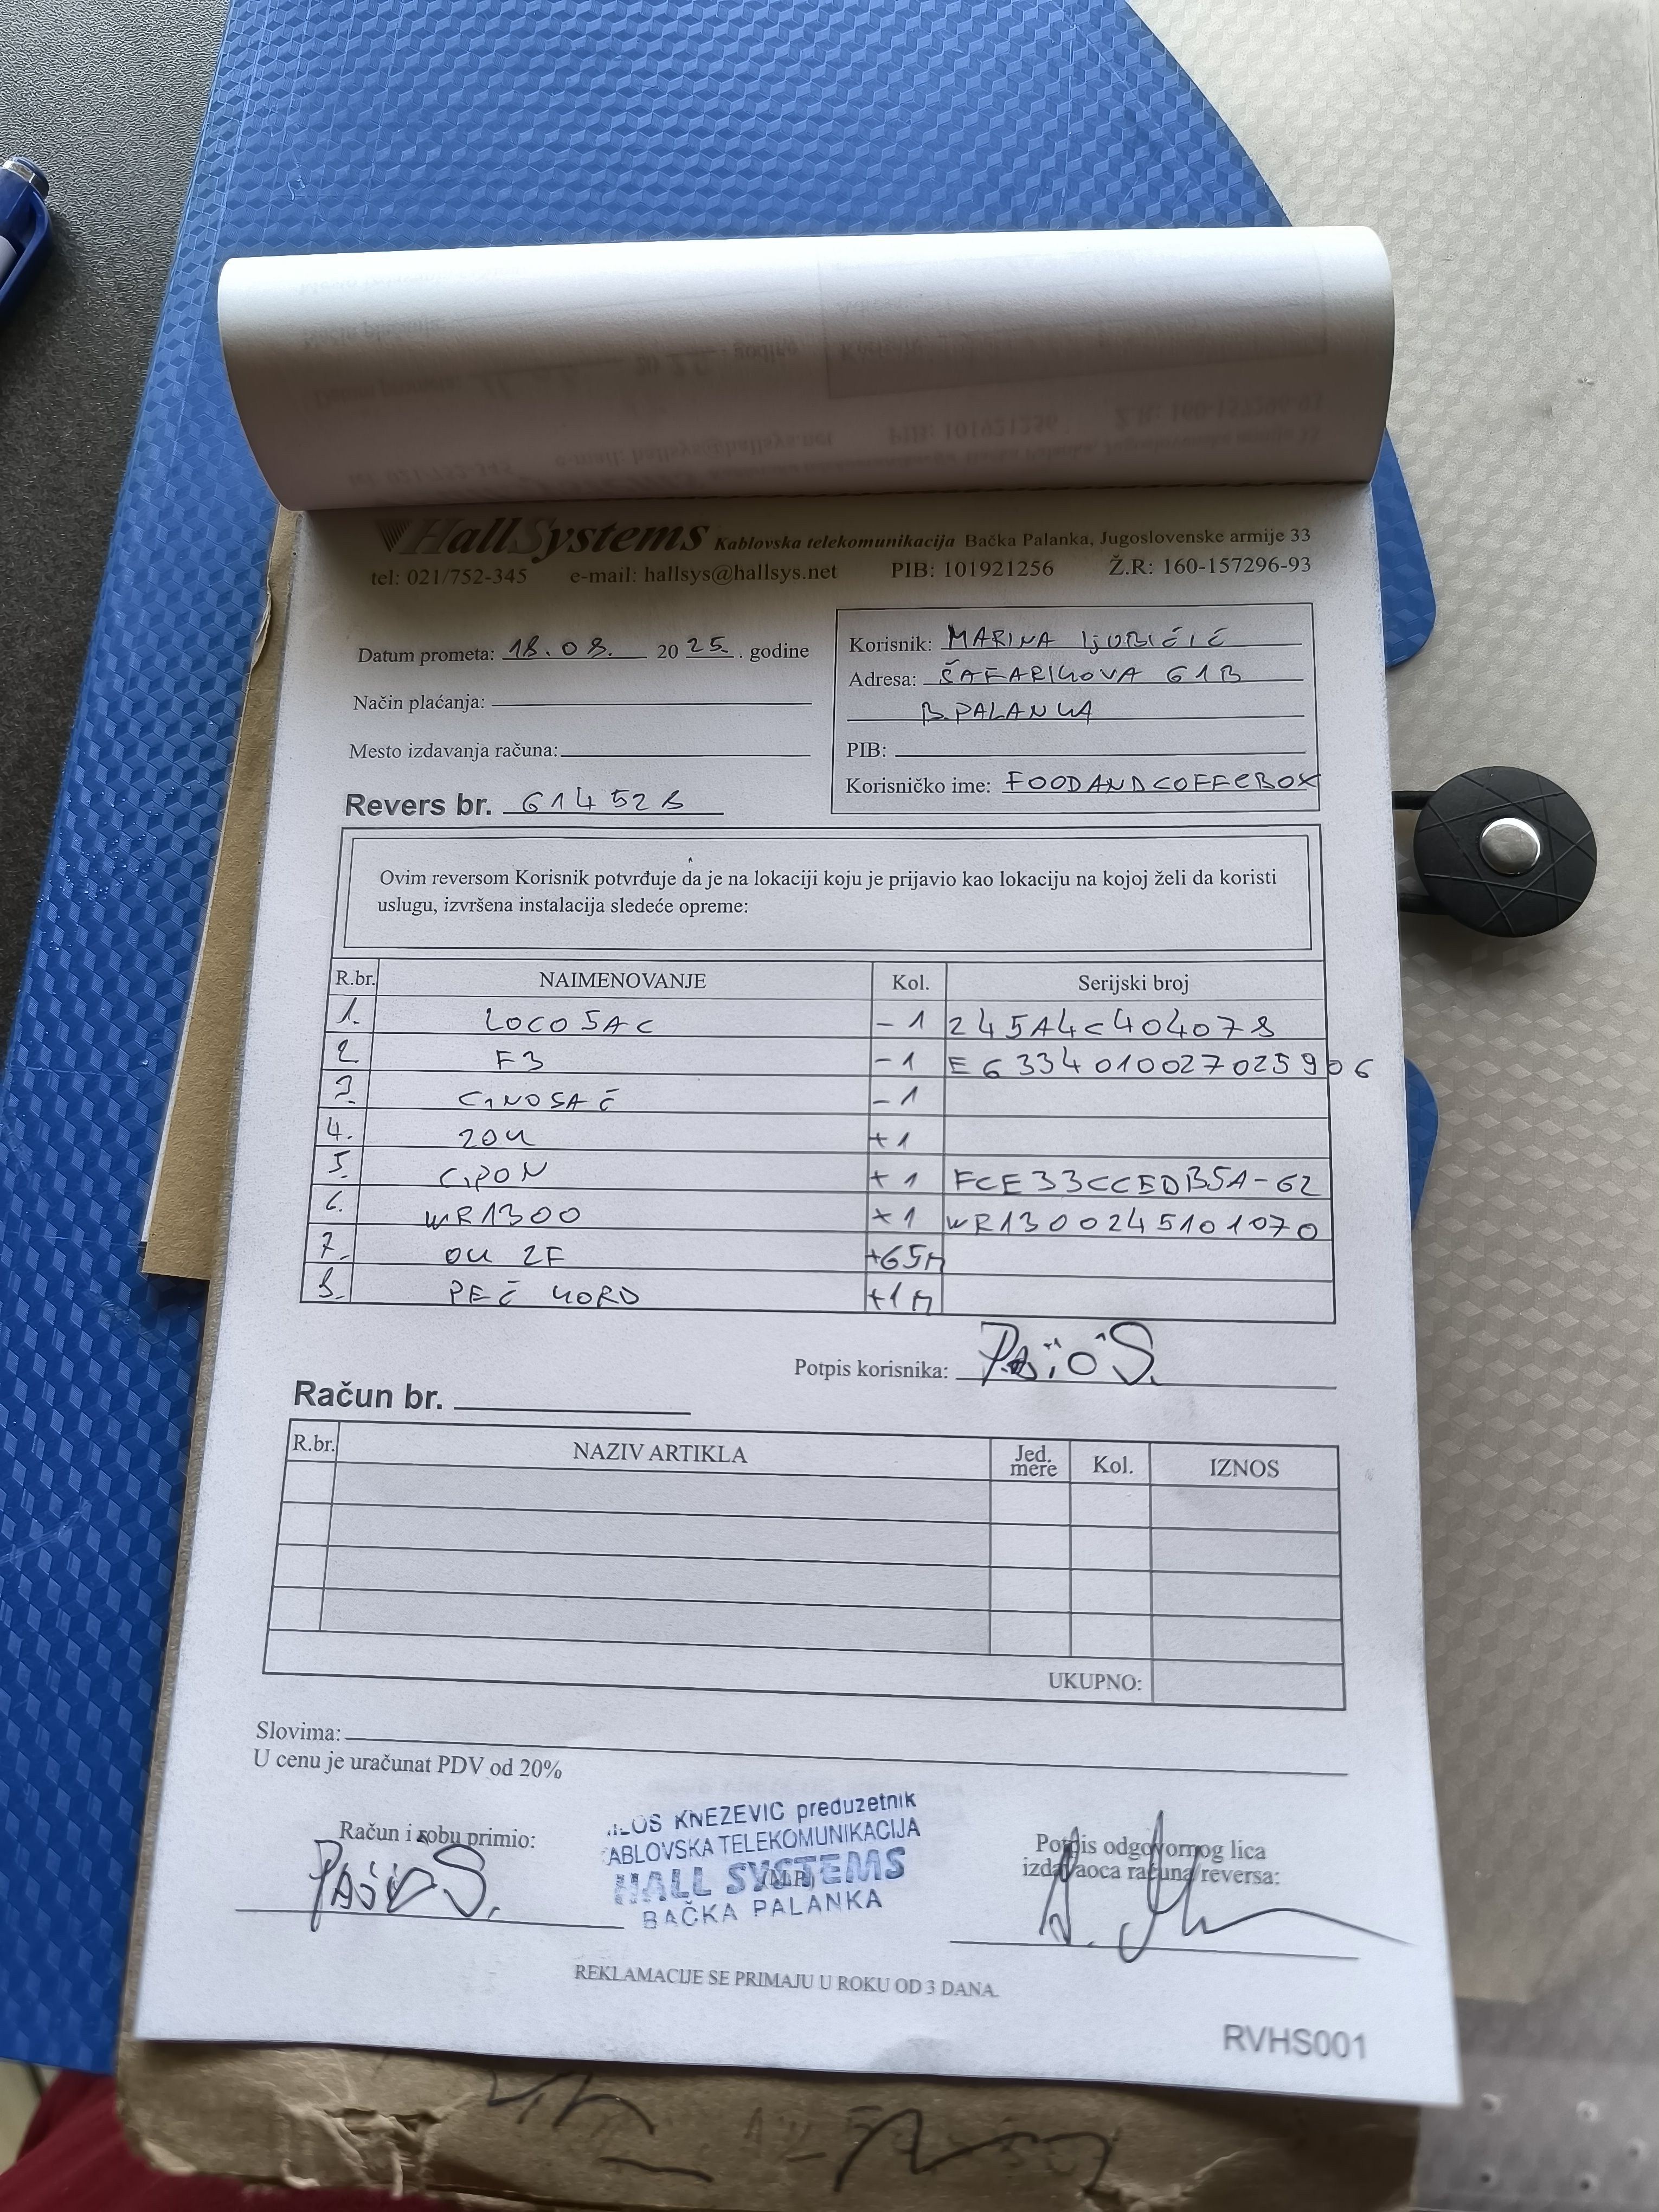 HallSystems Kablovska telekomunikacija Bačka Palanka, Jugoslovenske armije 33
tel: 021/752-345 e-mail: hallsys@hallsys.net PIB: 101921256 Ž.R: 160-157296-93
Datum prometa: 18.08. 2025. godine
Način plaćanja:
Mesto izdavanja računa:
Revers br. 614528
Korisnik: MARINA LjUBIČIĆ
Adresa: ŠAFARIKOVA 61B
B.PALANKA
PIB:
Korisničko ime: FOODANDCOFFEBOX
Ovim reversom Korisnik potvrđuje da je na lokaciji koju je prijavio kao lokaciju na kojoj želi da koristi
uslugu, izvršena instalacija sledeće opreme:
R.br. NAIMENOVANJE Kol. Serijski broj
1. LOCO 5AC -1 245A4C404078
2. F3 -1 E6334010027025906
3. -1
4. ZOK +1
5. GPON +1 FCE33CCEDB5A-62
6. WR1300 +1 WR1300245101070
7. OK 2F +65M
8. PEČ KORD +1M
Potpis korisnika:
Račun br.
R.br. NAZIV ARTIKLA Jed. mere Kol. IZNOS
UKUPNO:
Slovima:
U cenu je uračunat PDV od 20%
Račun i robu primio:
KNEZEVIC preduzetnik
ABLOVSKA TELEKOMUNIKACIJA
HALL SYSTEMS
(M.P.)
BAČKA PALANKA
Potpis odgovornog lica
izdavaoca računa/reversa:
REKLAMACIJE SE PRIMAJU U ROKU OD 3 DANA.
RVHS001